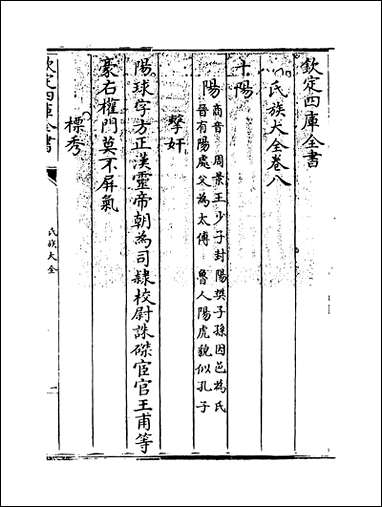 欽定四庫全書
氏族大全卷八
十陽
陽
商音　周景王少子封陽樊子孫因邑為氏
晉有陽處父為太傅　魯人陽虎貌似孔子
擊奸
陽球字方正漢靈帝朝為司隸校尉誅磔宦官王甫等
豪右權門莫不屏氣
標秀
欽定四庫全書
氏族大全
一